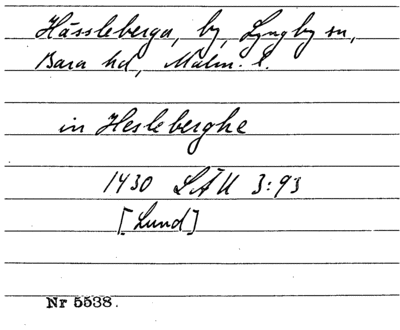 Hässleberga, by, Lyngby sn,
Bara hd, Malm. l.
in Hesleberghe
1430 LÄU 3:93
[Lund]
Nr 5538.